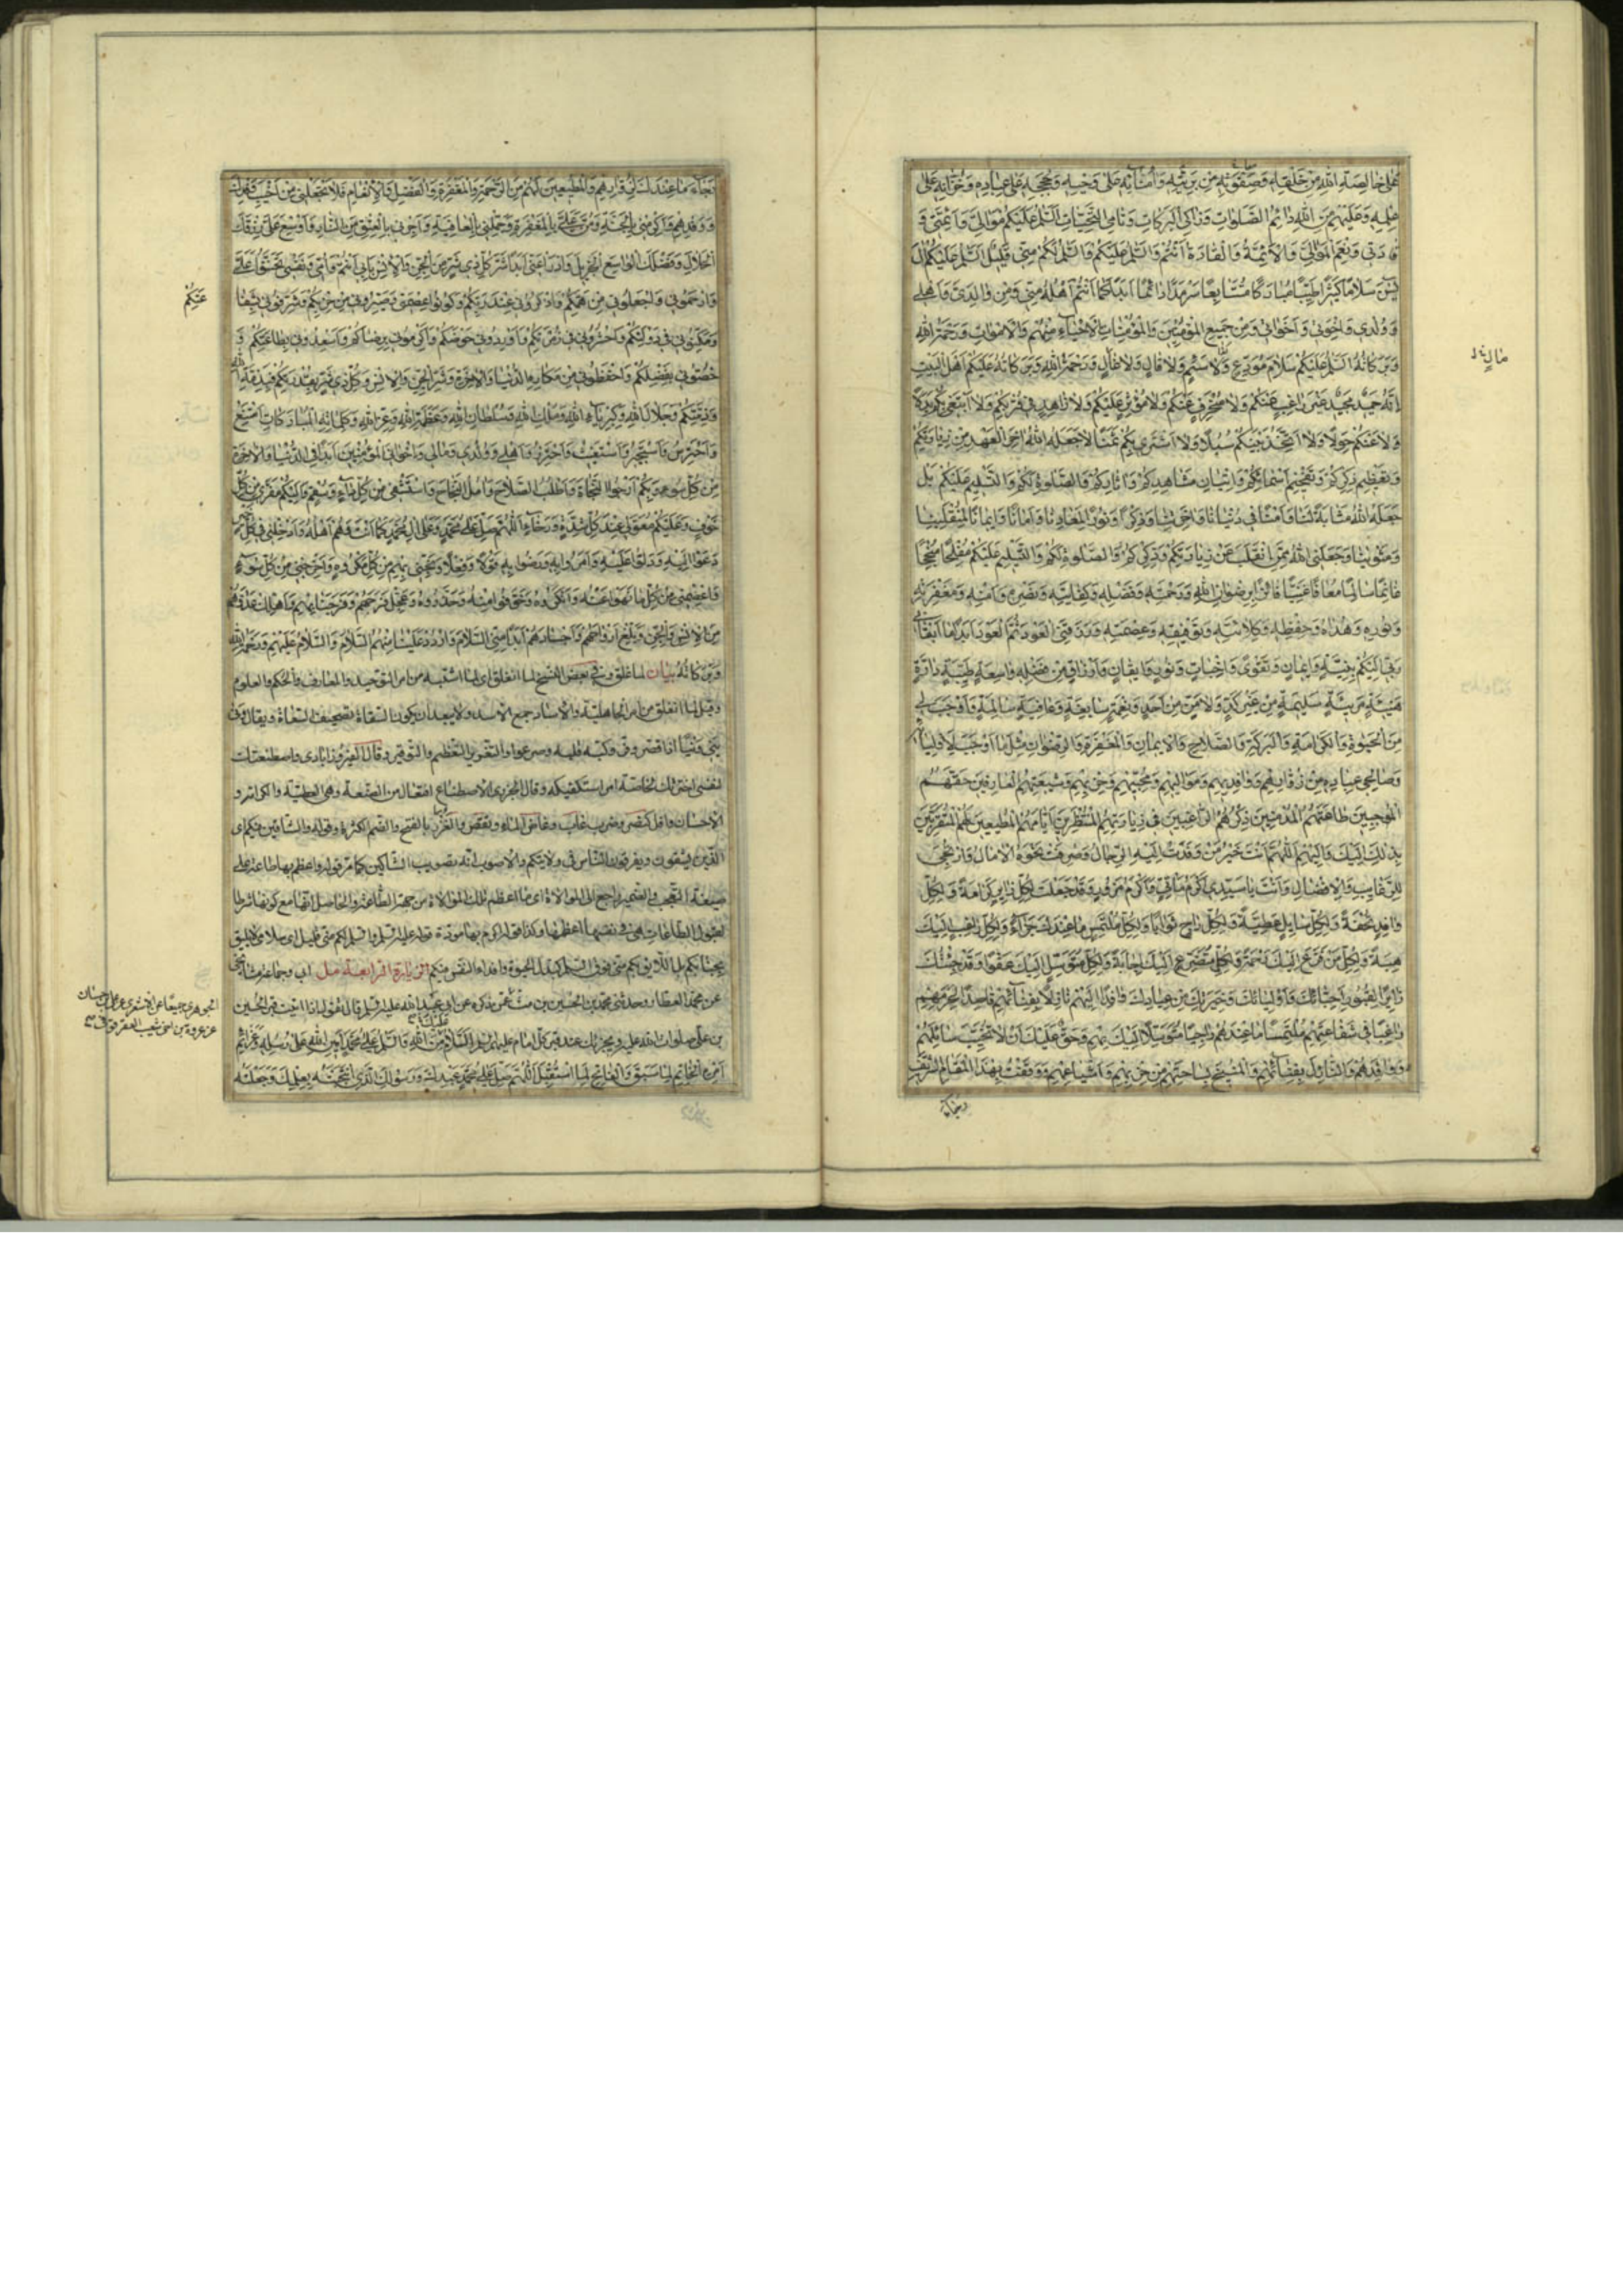 عَلَى خَالِصَةِ اللهِ مِنْ خَلْقِهِ وَصَفْوَتِهِ مِنْ بَرِيَّتِهِ وَأُمَنَائِهِ عَلَى وَحْيِهِ وَحُجَجِهِ عَلَى عِبَادِهِ وَخُزَّانِهِ عَلَى
عِلْمِهِ وَعَلَيْهِمْ مِنَ اللهِ دَائِمُ الصَّلَوَاتِ وَزَاكِي الْبَرَكَاتِ وَنَامِي التَّحِيَّاتِ السَّلَمُ عَلَيْكُمْ مَوَالِيَّ وَأَئِمَّتِي وَ
قَادَتِي وَنِعْمَ الْمَوَالِيَّ وَالْأَئِمَّةُ وَالْقَادَةُ أَنْتُمْ وَالسَّلَمُ عَلَيْكُمْ وَالسَّلَمُ لَكُمْ مِنِّي قَلِيلٌ السَّلَمُ عَلَيْكُمْ آلَ
يٰسۤ سَلَامًا كَثِيرًا طَيِّبًا مُبَارَكًا مُتَتَابِعًا سَرْمَدًا دَائِمًا أَبَدًا كَمَا أَنْتُمْ أَهْلُهُ مِنِّي وَمِنْ وَالِدَيَّ وَأَهْلِي
وَوُلْدِي وَإِخْوَتِي وَأَخَوَاتِي وَمِنْ جَمِيعِ الْمُؤْمِنِينَ وَالْمُؤْمِنَاتِ الْأَحْيَاءِ مِنْهُمْ وَالْأَمْوَاتِ وَرَحْمَةُ اللهِ
وَبَرَكَاتُهُ السَّلَمُ عَلَيْكُمْ سَلَامَ مُوَدِّعٍ وَلَا سَئِمٍ وَلَا قَالٍ وَلَا مَالٍّ وَرَحْمَةُ اللهِ وَبَرَكَاتُهُ عَلَيْكُمْ أَهْلَ الْبَيْتِ
إِنَّهُ حَمِيدٌ مَجِيدٌ غَيْرَ رَاغِبٍ عَنْكُمْ وَلَا مُنْحَرِفٍ عَنْكُمْ وَلَا مُؤْثِرٍ عَلَيْكُمْ وَلَا زَاهِدٍ فِي قُرْبِكُمْ وَلَا أَبْتَغِي بِكُمْ بَدَلًا
وَلَا عَنْكُمْ حِوَلًا وَلَا أَتَّخِذُ بَيْنَكُمْ سُبُلًا وَلَا أَشْتَرِي بِكُمْ ثَمَنًا لَا جَعَلَهُ اللهُ آخِرَ الْعَهْدِ مِنْ زِيَارَتِكُمْ
وَتَعْظِيمِ ذِكْرِكُمْ وَتَفْخِيمِ أَسْمَائِكُمْ وَإِتْيَانِ مَشَاهِدِكُمْ وَآثَارِكُمْ وَالصَّلَوةِ لَكُمْ وَالتَّسْلِيمِ عَلَيْكُمْ بَلْ
جَعَلَهُ اللهُ مَثَابَةً لَنَا وَأَمْنًا فِي دُنْيَانَا وَآخِرَتِنَا وَذِكْرًا وَنُورًا لِمَعَادِنَا وَأَمَانًا وَإِيمَانًا لِمُنْقَلَبِنَا
وَمَثْوَانَا وَجَعَلَنِي اللهُ مِمَّنِ انْقَلَبَ عَنْ زِيَارَتِكُمْ وَذِكْرِكُمْ وَالصَّلَوةِ لَكُمْ وَالتَّسْلِيمِ عَلَيْكُمْ مُفْلِحًا مُنْجِحًا
غَانِمًا سَالِمًا مُعَافًا غَنِيًّا فَائِزًا بِرِضْوَانِ اللهِ وَرَحْمَتِهِ وَفَضْلِهِ وَكِفَايَتِهِ وَنَصْرِهِ وَأَمْنِهِ وَمَغْفِرَتِهِ
وَنُورِهِ وَهُدَاهُ وَحِفْظِهِ وَكِلَائَتِهِ وَتَوْفِيقِهِ وَعِصْمَتِهِ وَرَزَقَنِيَ الْعَوْدَ ثُمَّ الْعَوْدَ أَبَدًا مَا أَبْقَانِي
رَبِّي إِلَيْكُمْ بِنِيَّةٍ وَإِيمَانٍ وَتَقْوَى وَإِخْبَاتٍ وَنُورٍ وَإِيقَانٍ وَأَرْزَاقٍ مِنْ فَضْلِهِ وَاسِعَةٍ طَيِّبَةٍ دَارَّةٍ
هَنِيئَةٍ مَرِيئَةٍ سَلِيمَةٍ مِنْ غَيْرِ كَدٍّ وَلَا مَنٍّ مِنْ أَحَدٍ وَنِعْمَةٍ سَابِغَةٍ وَعَافِيَةٍ سَالِمَةٍ وَأَوْجَبَ لِي
مِنَ الْحَيَوةِ وَالْكَرَامَةِ وَالْبَرَكَةِ وَالصَّلَاحِ وَالْإِيمَانِ وَالْمَغْفِرَةِ وَالرِّضْوَانِ مِثْلَ مَا أَوْجَبَ لِأَوْلِيَائِهِ
وَصَالِحِي عِبَادِهِ مِنْ زُوَّارِهِمْ وَوَافِدِيهِمْ وَمَوَالِيهِمْ وَمُحِبِّيهِمْ وَحِزْبِهِمْ وَشِيعَتِهِمُ الْعَارِفِينَ حَقَّهُمْ
الْمُوجِبِينَ طَاعَتَهُمُ الْمُدْمِنِينَ ذِكْرَهُمُ الرَّاغِبِينَ فِي زِيَارَتِهِمُ الْمُنْتَظِرِينَ أَيَّامَهُمُ الْمُطِيعِينَ لَهُمُ الْمُتَقَرِّبِينَ
بِذٰلِكَ إِلَيْكَ وَإِلَيْهِمْ اللَّهُمَّ أَنْتَ خَيْرُ مَنْ وَفَدَتْ إِلَيْهِ الرِّجَالُ وَصُرِفَتْ نَحْوَهُ الْآمَالُ وَارْتُجِيَ
لِلرَّغَائِبِ وَالْإِفْضَالِ وَأَنْتَ يَا سَيِّدِي أَكْرَمُ مَأْتِيٍّ وَأَكْرَمُ مَزُورٍ وَقَدْ جَعَلْتَ لِكُلِّ زَائِرٍ كَرَامَةً وَلِكُلِّ
وَافِدٍ تُحْفَةً وَلِكُلِّ سَائِلٍ عَطِيَّةً وَلِكُلِّ رَاجٍ ثَوَابًا وَلِكُلِّ مُلْتَمِسٍ مَا عِنْدَكَ جَزَاءً وَلِكُلِّ رَاغِبٍ إِلَيْكَ
هِبَةً وَلِكُلِّ مَنْ فَزِعَ إِلَيْكَ رَحْمَةً وَلِكُلِّ مُتَضَرِّعٍ إِلَيْكَ إِجَابَةً وَلِكُلِّ مُتَوَسِّلٍ إِلَيْكَ عَفْوًا وَقَدْ جِئْتُكَ
زَائِرًا لِقُبُورِ أَحِبَّائِكَ وَأَوْلِيَائِكَ وَخِيَرَتِكَ مِنْ عِبَادِكَ وَافِدًا إِلَيْهِمْ نَازِلًا بِفِنَائِهِمْ قَاصِدًا لِحَرَمِهِمْ
رَاغِبًا فِي شَفَاعَتِهِمْ مُلْتَمِسًا مَا عِنْدَهُمْ رَاجِيًا مُتَوَسِّلًا إِلَيْكَ بِهِمْ وَحَقٌّ عَلَيْكَ أَنْ لَا تُخَيِّبَ سَائِلَهُمْ
وَوَافِدَهُمْ وَالنَّازِلَ بِفِنَائِهِمْ وَالْمُنِيخَ بِسَاحَتِهِمْ مِنْ حِزْبِهِمْ وَأَشْيَاعِهِمْ وَوَقَفْتُ بِهٰذَا الْمَقَامِ الشَّرِيفِ
رَجَاءَ
رَجَاءَ مَا عِنْدَكَ لِزُوَّارِهِمْ وَالْمُطِيعِينَ لَهُمْ مِنَ الرَّحْمَةِ وَالْمَغْفِرَةِ وَالْفَضْلِ وَالْإِنْعَامِ فَلَا تَجْعَلْنِي مِنْ أَخْيَبِ
وَوَفْدِهِمْ وَأَكْرِمْنِي بِالْجَنَّةِ وَمُنَّ عَلَيَّ بِالْمَغْفِرَةِ وَجَمِّلْنِي بِالْعَافِيَةِ وَأَجِرْنِي بِالْعِتْقِ مِنَ النَّارِ وَأَوْسِعْ عَلَيَّ رِزْقَكَ
الْحَلَالَ وَفَضْلَكَ الْوَاسِعَ الْجَزِيلَ وَادْرَأْ عَنِّي أَبَدًا شَرَّ كُلِّ ذِي شَرٍّ مِنَ الْجِنِّ وَالْإِنْسِ بِأَبِي أَنْتُمْ وَأُمِّي وَنَفْسِي تَحَنَّنُوا عَلَيَّ
وَارْحَمُونِي وَاجْعَلُونِي مِنْ هَمِّكُمْ وَاذْكُرُونِي عِنْدَ رَبِّكُمْ وَكُونُوا عِصْمَتِي وَصَيِّرُونِي مِنْ حِزْبِكُمْ وَشَرِّفُونِي بِشَفَا
عَتِكُمْ
وَمَكِّنُونِي فِي دَوْلَتِكُمْ وَاحْشُرُونِي فِي زُمْرَتِكُمْ وَأَوْرِدُونِي حَوْضَكُمْ وَأَكْرِمُونِي بِرِضَاكُمْ وَأَسْعِدُونِي بِطَاعَتِكُمْ وَ
خُصُّونِي بِفَضْلِكُمْ وَاحْفَظُونِي مِنْ مَكَارِهِ الدُّنْيَا وَالْآخِرَةِ وَشَرِّ الْجِنِّ وَالْإِنْسِ وَكُلِّ ذِي شَرٍّ بِقُدْرَتِكُمْ فَبِذِمَّةِ اللهِ
وَذِمَّتِكُمْ وَجَلَالِ اللهِ وَكِبْرِيَاءِ اللهِ وَمُلْكِ اللهِ وَسُلْطَانِ اللهِ وَعَظَمَةِ اللهِ وَعِزِّ اللهِ وَكَلِمَاتِهِ الْمُبَارَكَاتِ أَمْتَنِعُ
وَأَحْتَرِسُ وَأَسْتَجِيرُ وَأَسْتَغِيثُ وَأَحْتَرِزُ وَأَهْلِي وَوُلْدِي وَمَالِي وَإِخْوَانِي الْمُؤْمِنِينَ أَبَدًا فِي الدُّنْيَا وَالْآخِرَةِ
مِنْ كُلِّ سُوءٍ وَبِكُمْ أَرْجُو النَّجَاةَ وَأَطْلُبُ الصَّلَاحَ وَآمُلُ النَّجَاحَ وَأَسْتَشْفِي مِنْ كُلِّ دَاءٍ وَسُقْمٍ وَإِلَيْكُمْ مَفَرِّي مِنْ كُلِّ
خَوْفٍ وَعَلَيْكُمْ مُعَوَّلِي عِنْدَ كُلِّ شِدَّةٍ وَرَخَاءٍ اللَّهُمَّ صَلِّ عَلَى مُحَمَّدٍ وَعَلَى آلِ مُحَمَّدٍ كَمَا أَنْتَ وَهُمْ أَهْلُهُ وَأَدْخِلْنِي فِي كُلِّ خَيْرٍ
دَعَوْا إِلَيْهِ وَدَلُّوا عَلَيْهِ وَأَمَرُوا بِهِ وَرَضُوا بِهِ قَوْلًا وَفِعْلًا وَنَجِّنِي بِهِمْ مِنْ كُلِّ مَكْرُوهٍ وَأَخْرِجْنِي مِنْ كُلِّ سُوءٍ
وَاعْصِمْنِي مِنْ كُلِّ مَا نَهَوْا عَنْهُ وَأَنْكَرُوهُ وَخَوَّفُوا مِنْهُ وَحَذَّرُوهُ وَعَجِّلْ فَرَجَهُمْ وَفَرَجَنَا بِهِمْ وَأَهْلِكْ عَدُوَّهُمْ
مِنَ الْإِنْسِ وَالْجِنِّ وَبَلِّغْ أَرْوَاحَهُمْ وَأَجْسَادَهُمْ أَبَدًا مِنِّي السَّلَامَ وَارْدُدْ عَلَيْنَا مِنْهُمُ السَّلَامَ وَالسَّلَامُ عَلَيْهِمْ وَرَحْمَةُ اللهِ
وَبَرَكَاتُهُ بيان لما غلق وفي بعض النسخ لما انغلق اى لما اشتبه من امر التوحيد والمعارف والحكم والعلوم
وقيل لما انغلق من امر الجاهلية والآساد جمع الاسد ولا يبعد ان يكون السقاة تصحيف السعاة ويقال ونى
ينى ونيا اذا قصر وفى وكبه قلبه وصرعه والتعزير التعظيم والتوقير وقال الفيروزابادى واصطنعتك
لنفسى اخترتك لخاصة امر استكفيكه وقال الجزرى الاصطناع افتعال من الصنعة وهى العطية والكرامة و
الاحسان وافل كنصر وضرب غاب وغاض الماء ونقص والغزر بالفتح والضم الكثرة وقوله والشاكين فيكم اى
الذين يشقون ويفرقون الناس فى ولايتكم والاصوب انه بصويب الشاكين كما مر قوله واعظم بها طاعة على
صيغة التعجب والضمير راجع الى الموالاة اى ما اعظم تلك الموالاة من جهة الطاعة والحاصل انها مع كونها شرطا
لقبول الطاعات هى فى نفسها اعظمها وكذا قوله اكرم بها مودة قوله عليه السلم والسلم لكم منى قليل اى سلامى لا يليق
بجنابكم بل اللايق بكم منى فوق السلم كبذل الحيوة وافداء النفس فيكم الزيارة الرابعة مل ابى وجماعة مشايخى
عن محمد العطار وحدثنى محمد بن الحسين بن مت الجوهرى جميعا عن الاشعرى عن على بن حسان عن عروة بن اخى شعيب العقرقوفى عمن ذكره عن ابى عبد الله عليه السلم قال تقول اذا اتيت قبر الحسين
بن على صلوات الله عليه ويجزيك عند قبر كل امام عليهم السلم السَّلَامُ عَلَيْكَ مِنَ اللهِ وَالسَّلَمُ عَلَى مُحَمَّدٍ أَمِينِ اللهِ عَلَى رُسُلِهِ وَعَزَائِمِ
أَمْرِهِ الْخَاتِمِ لِمَا سَبَقَ وَالْفَاتِحِ لِمَا اسْتُقْبِلَ اللَّهُمَّ صَلِّ عَلَى مُحَمَّدٍ عَبْدِكَ وَرَسُولِكَ الَّذِي انْتَجَبْتَهُ بِعِلْمِكَ وَجَعَلْتَهُ